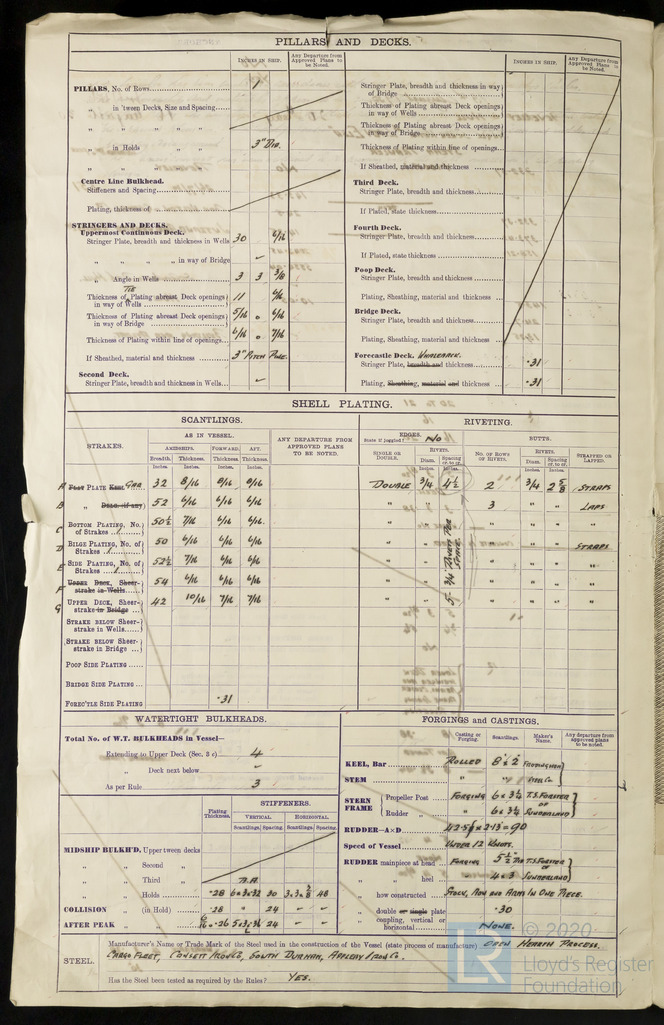 PILLARS AND DECKS.
INCHES IN SHIP.
Any Departure from Approved Plans to be Noted.
PILLARS, No. of Rows 1
" in 'tween Decks, Size and Spacing
" " " "
" in Holds " " 3" DIA.
" " "
Centre Line Bulkhead.
Stiffeners and Spacing
Plating, thickness of
STRINGERS AND DECKS.
Uppermost Continuous Deck.
Stringer Plate, breadth and thickness in Wells 30 6/16
" " " " in way of Bridge
" Angle in Wells 3 3 3/8
TIE
Thickness of Plating abreast Deck openings in way of Wells 11 6/16
Thickness of Plating abreast Deck openings in way of Bridge 5/16 6/16
Thickness of Plating within line of openings 6/16 7/16
If Sheathed, material and thickness 3" PITCH PINE.
Second Deck.
Stringer Plate, breadth and thickness in Wells
INCHES IN SHIP.
Any Departure from Approved Plans to be Noted.
Stringer Plate, breadth and thickness in way of Bridge
Thickness of Plating abreast Deck openings in way of Wells
Thickness of Plating abreast Deck openings in way of Bridge
Thickness of Plating within line of openings
If Sheathed, material and thickness
Third Deck.
Stringer Plate, breadth and thickness
If Plated, state thickness
Fourth Deck.
Stringer Plate, breadth and thickness
If Plated, state thickness
Poop Deck.
Stringer Plate, breadth and thickness
Plating, Sheathing, material and thickness
Bridge Deck.
Stringer Plate, breadth and thickness
Plating, Sheathing, material and thickness
Forecastle Deck. WHALEBACK.
Stringer Plate, breadth and thickness .31
Plating, Sheathing, material and thickness .31
SHELL PLATING.
SCANTLINGS.
STRAKES.
AS IN VESSEL.
AMIDSHIPS. FORWARD. AFT.
Breadth. Thickness. Thickness. Thickness.
Inches. Inches. Inches. Inches.
ANY DEPARTURE FROM APPROVED PLANS TO BE NOTED.
RIVETING.
EDGES.
State if joggled? NO
SINGLE OR DOUBLE.
RIVETS.
Diam. Spacing cr. to cr.
Inches. Inches.
BUTTS.
NO. OF ROWS OF RIVETS.
RIVETS.
Diam. Spacing cr. to cr.
Inches. Inches.
STRAPPED OR LAPPED.
A Flat PLATE Keel GAR 32 8/16 8/16 8/16 DOUBLE 3/4 4½ 2 3/4 2 5/8 STRAPS
B " Dblg. (if any) 52 6/16 6/16 6/16 " " 3 " " LAPS
C BOTTOM PLATING, No. of Strakes 1 50½ 7/16 6/16 6/16 " " " " " "
D BILGE PLATING, No. of Strakes 1 50 6/16 6/16 6/16 " " " " " STRAPS
E SIDE PLATING, No. of Strakes 1 52½ 7/16 6/16 6/16 " " " " " "
F UPPER DECK, Sheer-strake in Wells 54 6/16 6/16 6/16 " " " " " "
G UPPER DECK, Sheer-strake in Bridge 42 10/16 7/16 7/16 " " " " " "
STRAKE BELOW Sheer-strake in Wells
STRAKE BELOW Sheer-strake in Bridge
POOP SIDE PLATING
BRIDGE SIDE PLATING
FOREC'TLE SIDE PLATING .31
WATERTIGHT BULKHEADS.
Total No. of W.T. BULKHEADS in Vessel—
Extending to Upper Deck (Sec. 3 c) 4
" Deck next below
As per Rule 3
Plating Thickness.
STIFFENERS.
VERTICAL HORIZONTAL
Scantlings. Spacing. Scantlings. Spacing.
MIDSHIP BULKH'D. Upper tween decks
" " Second "
" " Third "
" " Holds .28 6x3x.32 30 3x3x3/8 48
COLLISION " (in Hold) .28 " 24
AFTER PEAK " 24
FORGINGS and CASTINGS.
Casting or Forging. Scantlings. Maker's Name. Any departure from approved plans to be noted.
KEEL, Bar ROLLED 8½ 2 FRODINGHAM
STEM " " STEEL CO.
STERN FRAME Propeller Post FORGING 6 x 3¼ T.S. FORSTER
Rudder " " 6 x 3¼ OF SUNDERLAND
RUDDER—A×D 42.56 x 2.13 = 90
Speed of Vessel UNDER 12 KNOTS.
RUDDER mainpiece at head FORGING 5½ DIA T.S. FORSTER
" " heel 4 x 3 OF SUNDERLAND
" how constructed STOCK, AND ARMS IN ONE PIECE.
" double or single plate .30
" coupling, vertical or horizontal NONE.
STEEL.
Manufacturer's Name or Trade Mark of the Steel used in the construction of the Vessel (state process of manufacture) OPEN HEARTH PROCESS.
CARGO FLEET, CONSETT IRON CO, SOUTH DURHAM, APPLEBY IRON CO.
Has the Steel been tested as required by the Rules? YES.
© 2020
LR Lloyd's Register
Foundation